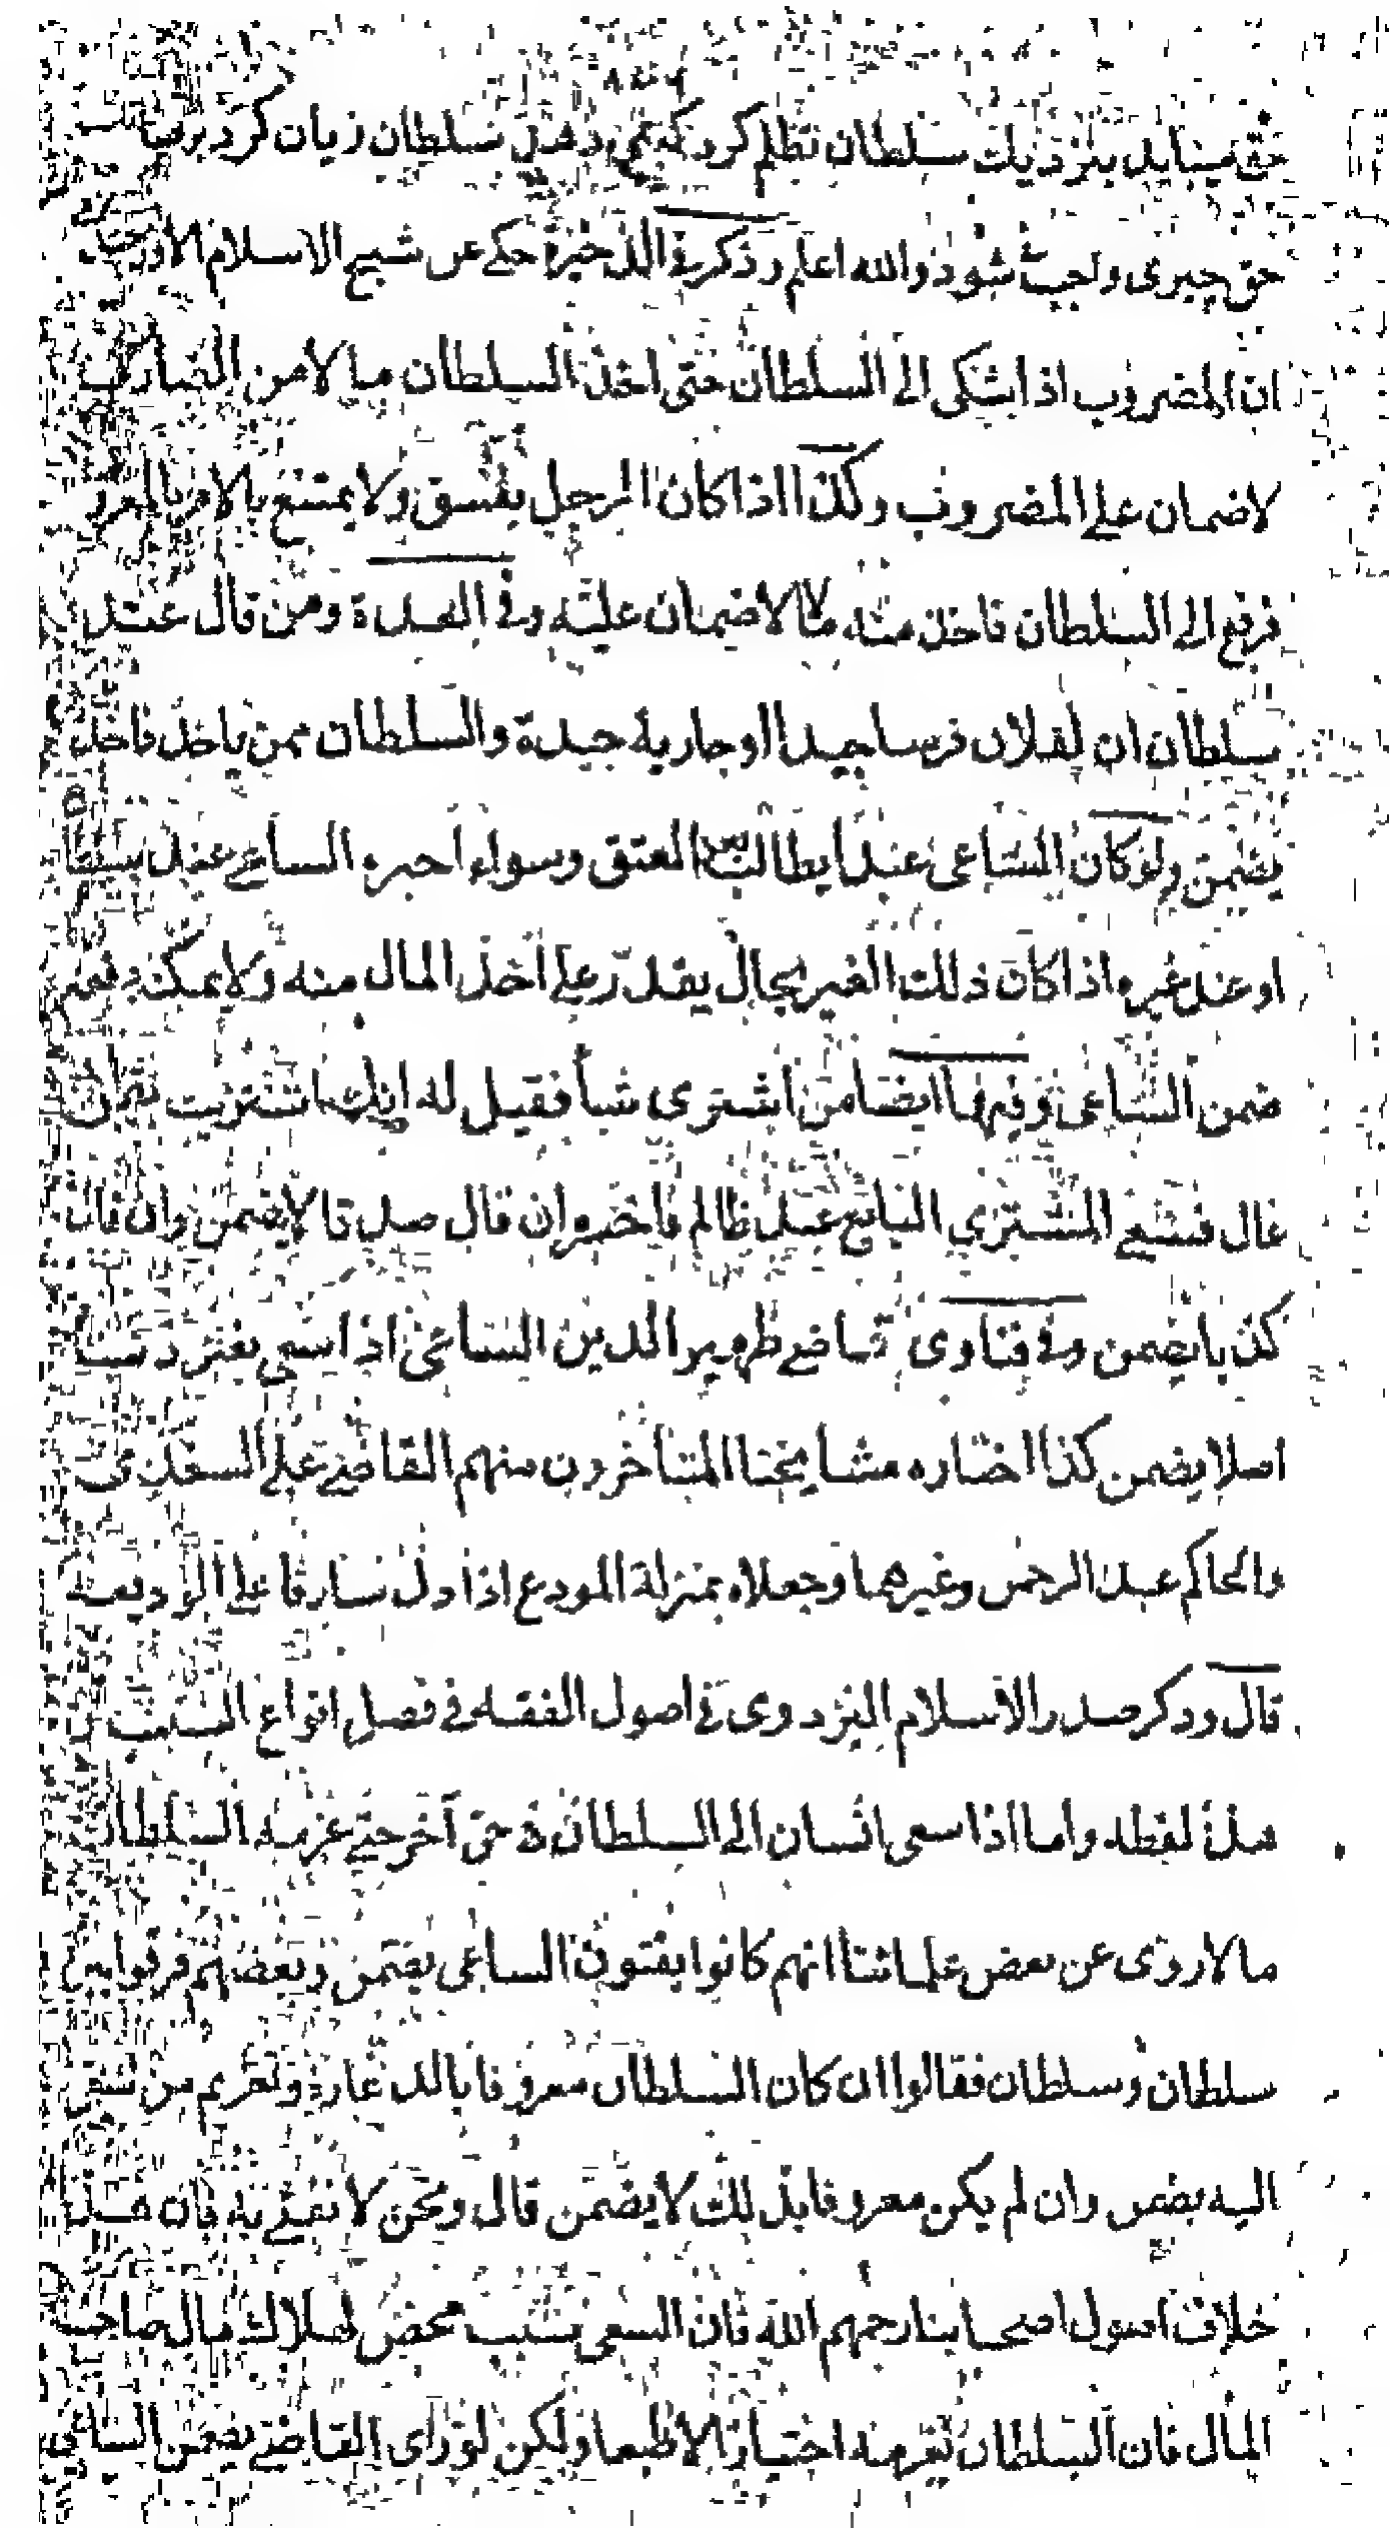 حق مينايد بنزديك سلطان تظلم كرد كه سلطان زيان كرد برين
حق چيزى واجب شود والله اعلم وذكر فى الذخيرة حكى عن شيخ الاسلام
ان المضروب اذا شكى الى السلطان حتى اخذ السلطان مالا من الضارب
لا ضمان على المضروب وكذا اذا كان الرجل يفسق ولا يمتنع بالامر بالمعروف
فرفع الى السلطان فاخذ منه مالا لا ضمان عليه وفى العدة ومن قال عند
سلطان ان لفلان فرسا جيدا او جارية جيدة والسلطان ممن ياخذ فاخذ
يضمن ولو كان الساعى عبدا يطالب بعد العتق وسواء اخبره الساعى عند سلطان
او عند غيره اذا كان ذلك الغير بحال يقدر على اخذ المال منه ولا يمكنه دفعه
ضمن الساعى وفيها ايضا من اشترى شيأ فقيل له انك اشتريت بثمن
غال فسعى المشترى البائع عند ظالم فاخسر وان قال صدقا لا يضمن وان قال
كذبا يضمن وفى فتاوى قاضى ظهير الدين الساعى اذا سعى بغير ذنب
اصلا يضمن كذا اختاره مشايخنا المتاخرون منهم القاضى على السغدى
والحاكم عبد الرحمن وغيرهما وجعلاه بمنزلة المودع اذا دل سارقا على الوديعة
قال وذكر صدر الاسلام البزدوى فى اصول الفقه فى فصل انواع السبب
هذا لفظه واما اذا سعى انسان الى السلطان فى حق آخر حتى غرمه السلطان
مالا روى عن بعض علمائنا انهم كانوا يفتون الساعى يضمن وبعضهم فرقوا بين
سلطان وسلطان فقالوا ان كان السلطان معروفا بالدعارة وتغريم من سعى
اليه يضمن وان لم يكن معروفا بذلك لا يضمن قال ونحن لا نفتى به فان هذا
خلاف اصول اصحابنا رحمهم الله فان السعى سبب محض لهلاك مال صاحب
المال فان السلطان يغرمه اختيارا لا طبعا ولكن لو راى القاضى يضمن الساعى